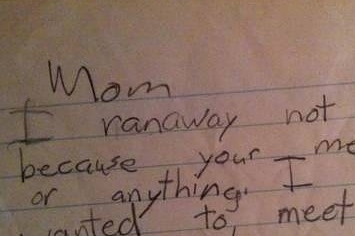 Mom
I ranaway not
because your
or anything. I
wanted to, meet